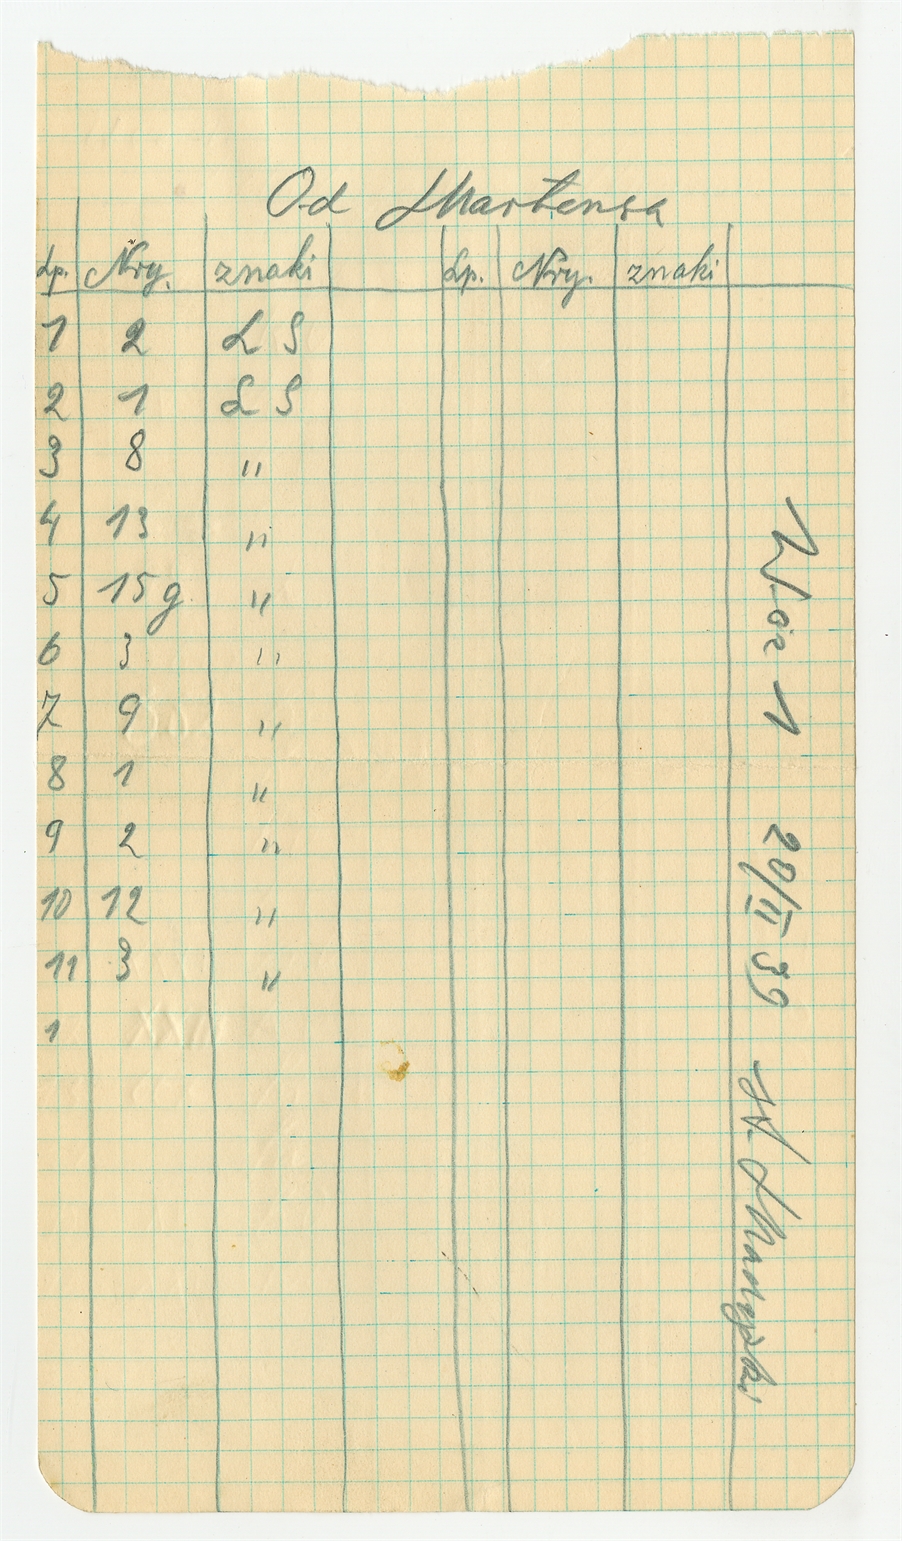 Od Martensa
Lp. Nry. znaki Lp. Nry. znaki
1 2 L S
2 1 L S
3 8 "
4 13 "
5 15g "
6 3 "
7 9 "
8 1 "
9 2 "
10 12 "
11 3 "
1
Wóz 1 20/II 39 St.